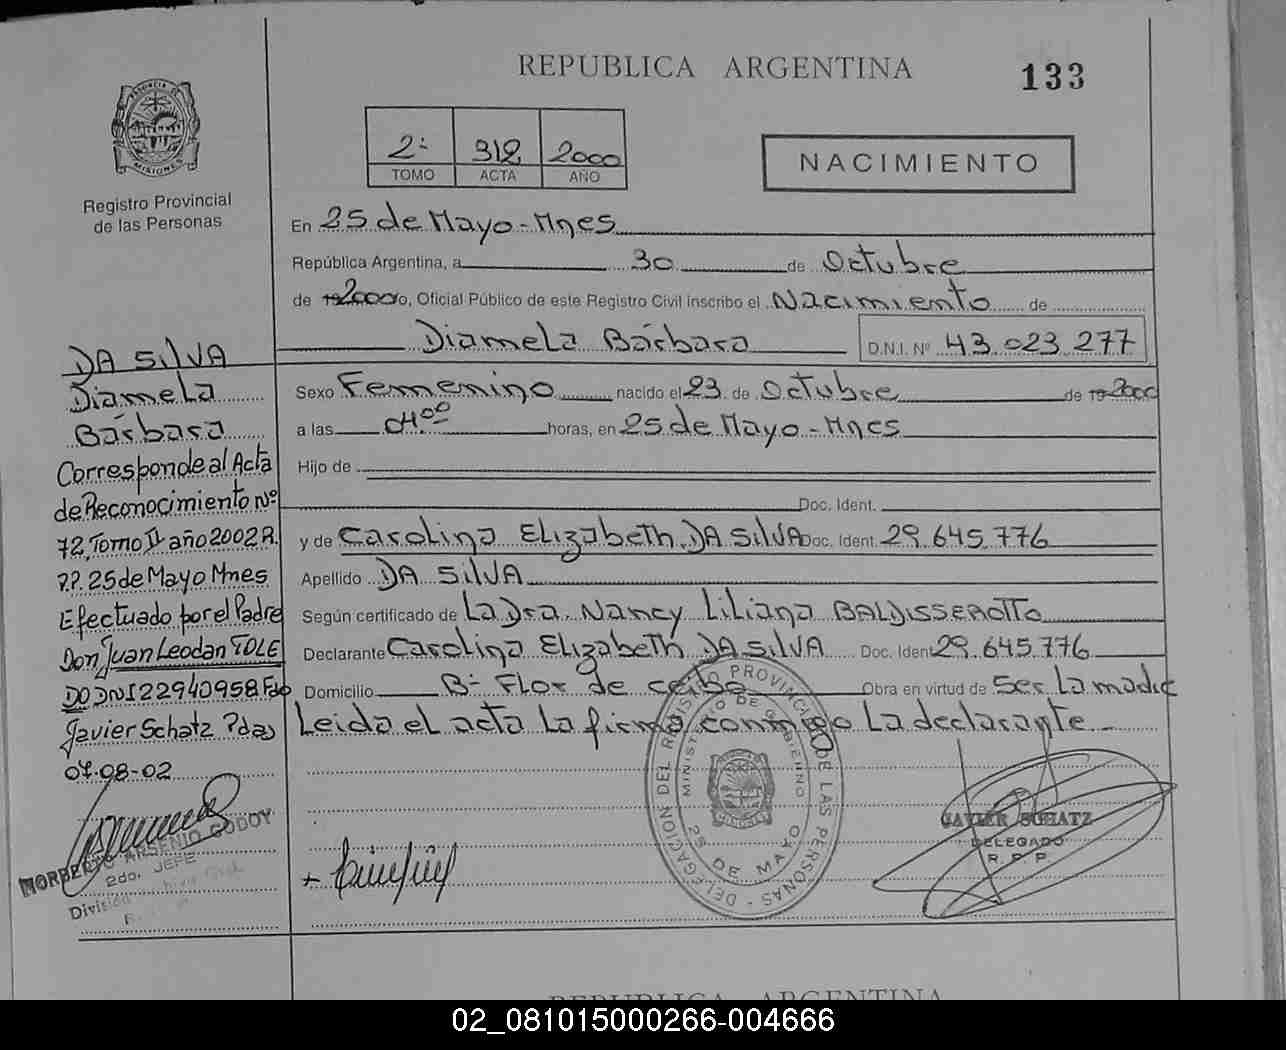 REPUBLICA ARGENTINA
133
MISIONES
Registro Provincial
de las Personas
2ª 312 2000
TOMO ACTA AÑO
NACIMIENTO
En 25 de Mayo - Mnes
República Argentina, a 30 de Octubre
de 2000 o, Oficial Público de este Registro Civil inscribo el Nacimiento de
Diamela Bárbara D.N.I. Nº 43.023.277
Sexo Femenino nacido el 23 de Octubre de 19 2000
a las 04.00 horas, en 25 de Mayo - Mnes
Hijo de
Doc. Ident.
y de Carolina Elizabeth DA SILVA Doc. Ident. 29.645.776
Apellido DA SILVA
Según certificado de La Dra. Nancy Liliana BALDISSEROTTO
Declarante Carolina Elizabeth DA SILVA Doc. Ident 29.645.776
Domicilio Bº Flor de ceibo Obra en virtud de Ser La madre
Leida el acta La firma conmigo La declarante.-
DA SILVA
Diamela
Bárbara
Corresponde al Acta
de Reconocimiento Nº
72, Tomo II año 2002 R.
P.P. 25 de Mayo Mnes
Efectuado por el Padre
Don Juan Leodan TOLE
DO DNI 22940958 Fdo
Javier Schatz Pdas
07-08-02
NORBERTO ARSENIO GODOY
2do. JEFE
División
DELEGACION DEL REGISTRO PROVINCIAL DE LAS PERSONAS
MINISTERIO DE GOBIERNO
MISIONES
25 DE MAYO
JAVIER SCHATZ
DELEGADO
R. P. P.
REPUBLICA ARGENTINA
02_081015000266-004666